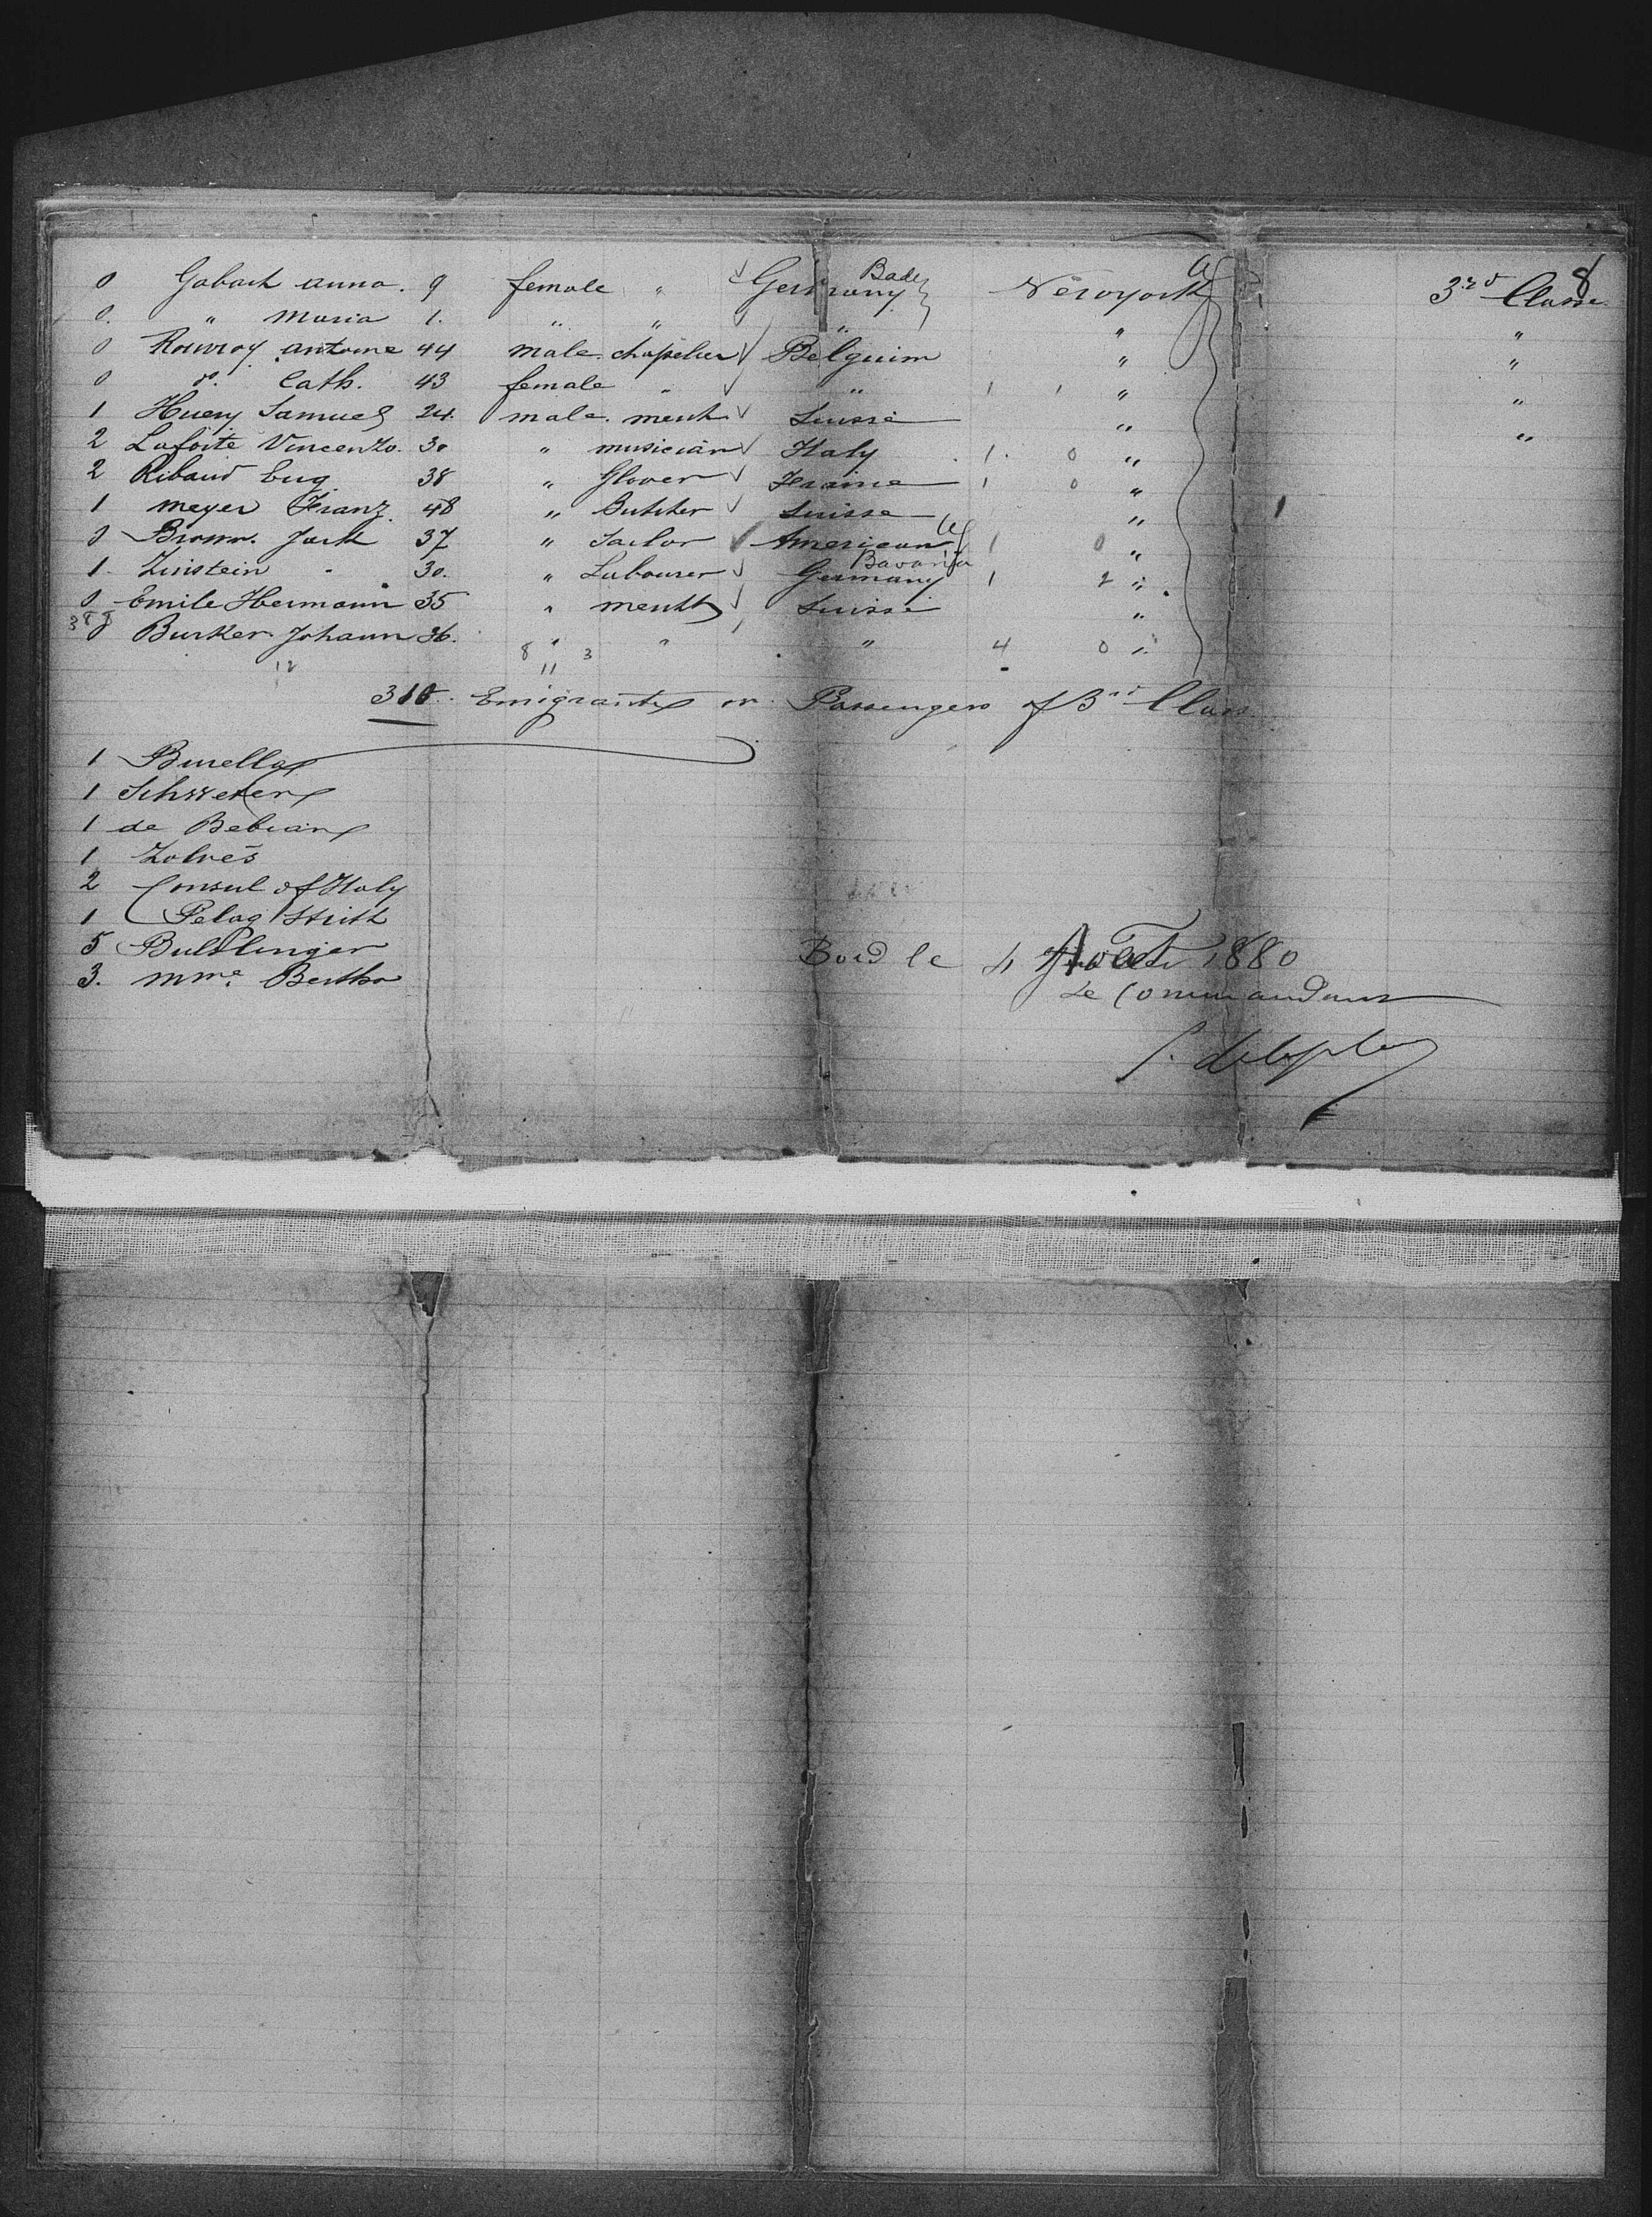 8
0 Gabach Anna. 9 female " Germany Bade Newyork 3rd Classe
0. " Maria 1. " " " " "
0 Rouvroy Antoine 44 male. chapelier Belguim " "
0 do. Cath. 43 female " " 1 1 " "
1 Hueny Samuel 24. male. mercht Suisse " "
2 Laforte Vincenzo. 30 " musician Italy 1. 0 "
2 Ribaud Eug. 38 " Glover France 1 0 "
1 Meyer Franz. 48 " Butcher Suisse " 1
0 Brown. Jack 37 " Sailor American 1 0 "
1. Zinstein - 30. " Labourer Germany Bavaria 1 2 "
0 Emile Hermann 35 " mercht Suisse "
388
0 Burker. Johann 36. " " " 4 0 "
12 8 3
11
310. Emigrants or Passengers of 3rd Class
1 Burella
1 Schweter
1 de Bebian
1 Zolvés
2 Consul of Italy
1 Pelag
5 Bulslinger
3. Mme. Bertho
Bord le 4 Août 1880
Le Commandant